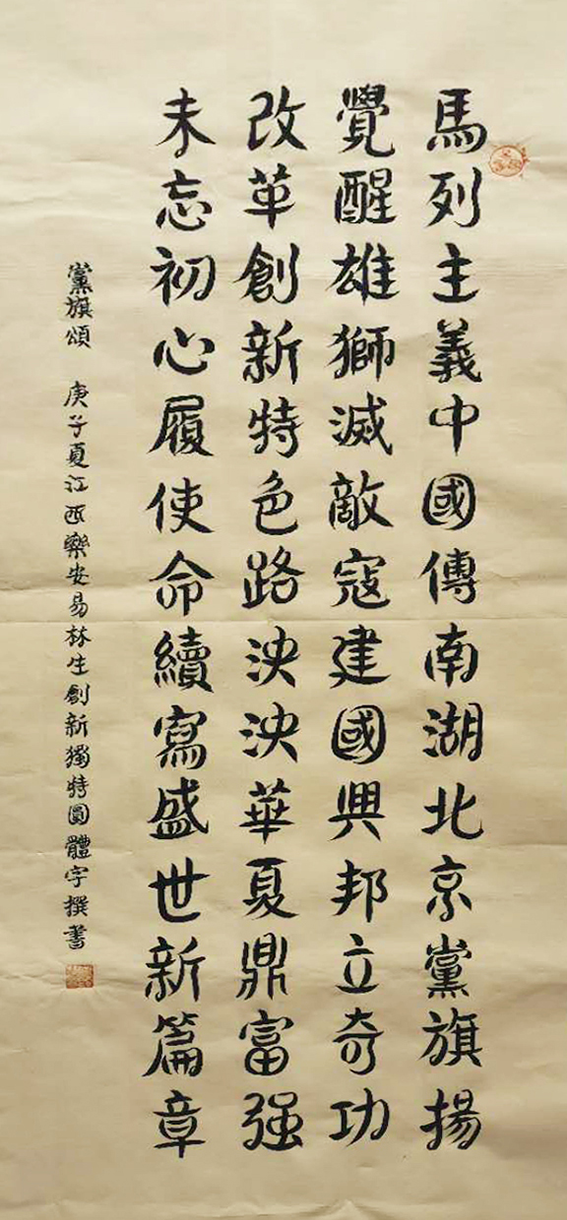 馬列主義中國傳南湖北京黨旗揚
覺醒雄獅滅敵寇建國興邦立奇功
改革創新特色路泱泱華夏鼎富强
未忘初心履使命續寫盛世新篇章
黨旗頌 庚子夏江西樂安易林生創新獨特圓體字撰書